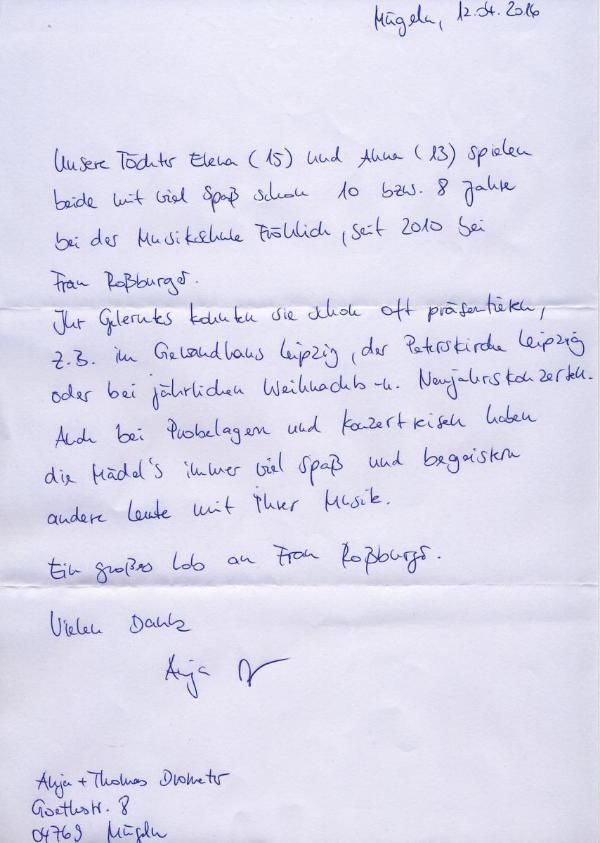 Mügeln, 12.04.2016
Unsere Töchter Elena (15) und Anna (13) spielen
beide mit viel Spaß schon 10 bzw. 8 Jahre
bei der Musikschule Fröhlich, seit 2010 bei
Frau Roßburger.
Ihr Gelerntes konnten sie schon oft präsentieren,
z.B. im Gewandhaus Leipzig, der Peterskirche Leipzig
oder bei jährlichen Weihnachts- u. Neujahrskonzerten.
Auch bei Probelagern und Konzertreisen haben
die Mädel's immer viel Spaß und begeistern
andere Leute mit ihrer Musik.
Ein großes Lob an Frau Roßburger.
Vielen Dank
Anja
Anja + Thomas
Goethestr. 8
04769 Mügeln